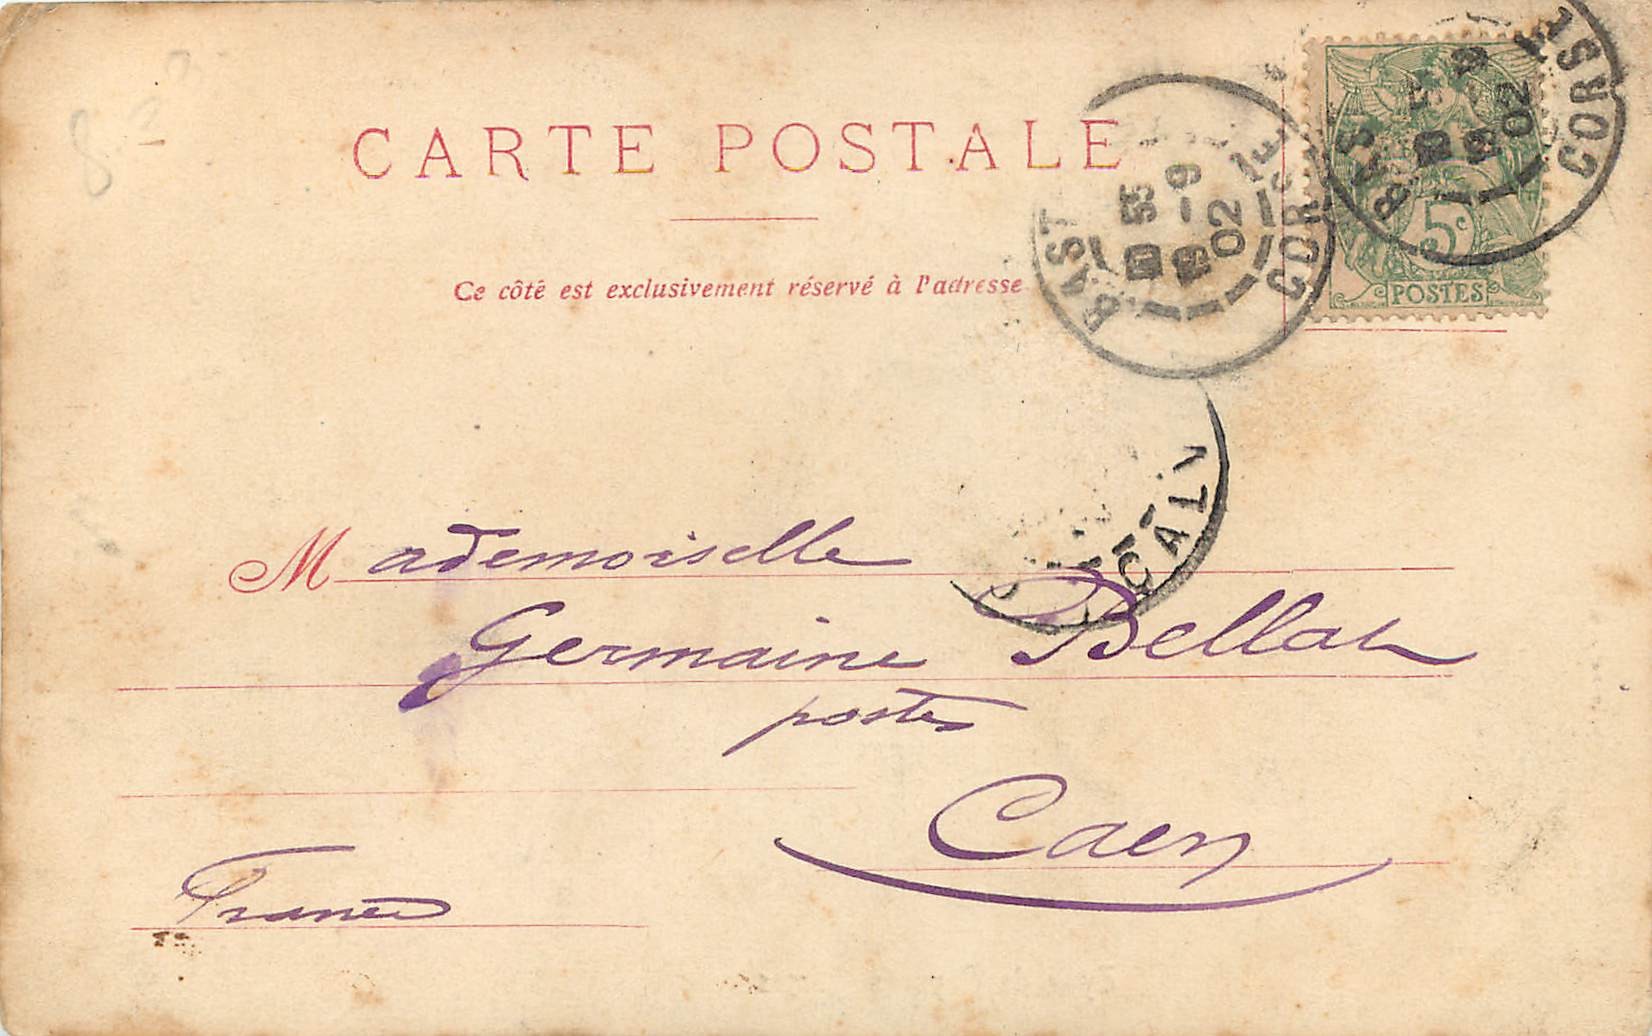 CARTE POSTALE
Ce côté est exclusivement réservé à l'adresse
BASTIA CORSE
10 55
-9
02
5c
POSTES
CALV
Mademoiselle
Germaine Bellat
postes
Caen
France